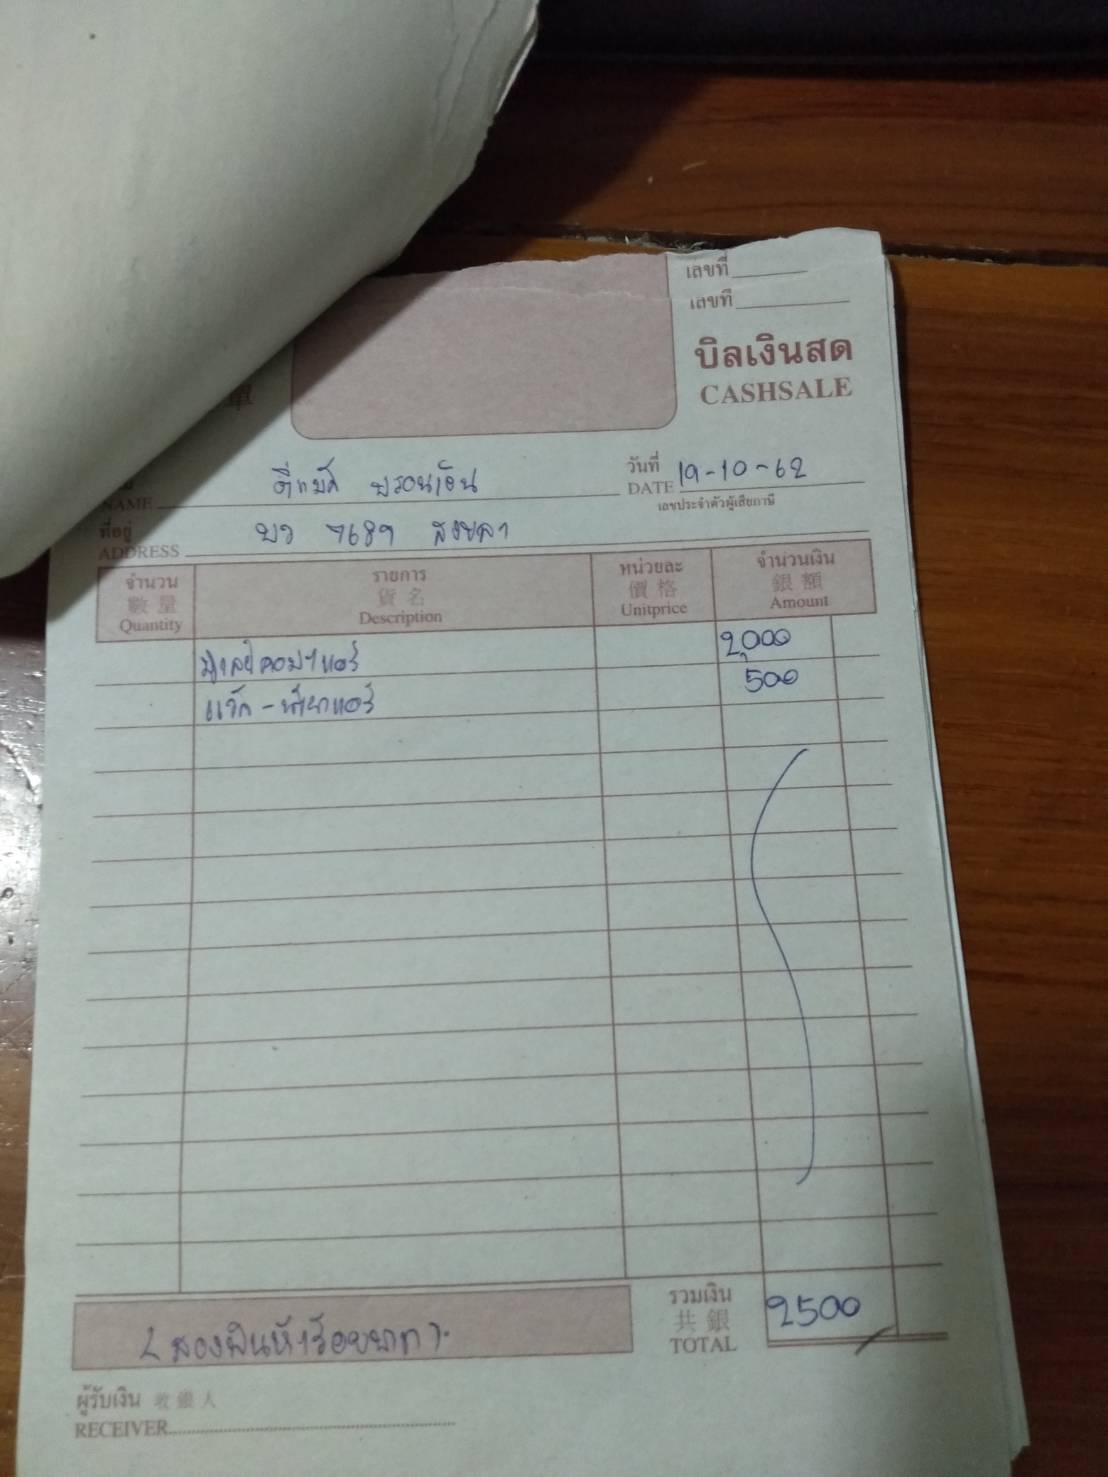 เลขที่
เลขที่
บิลเงินสด
CASHSALE
單
NAME ดีแม๊ค พรอนเอ็น
วันที่
DATE 19-10-62
เลขประจำตัวผู้เสียภาษี
ที่อยู่
ADDRESS บว 7689 สงขลา
จำนวน รายการ หน่วยละ จำนวนเงิน
數量 貨名 價格 銀額
Quantity Description Unitprice Amount
มูเลย์คอมฯแอร์ 2,000
แว๊ค-น้ำยาแอร์ 500
รวมเงิน
共銀
TOTAL 2500
(สองพันห้าร้อยบาท).
ผู้รับเงิน 收銀人
RECEIVER